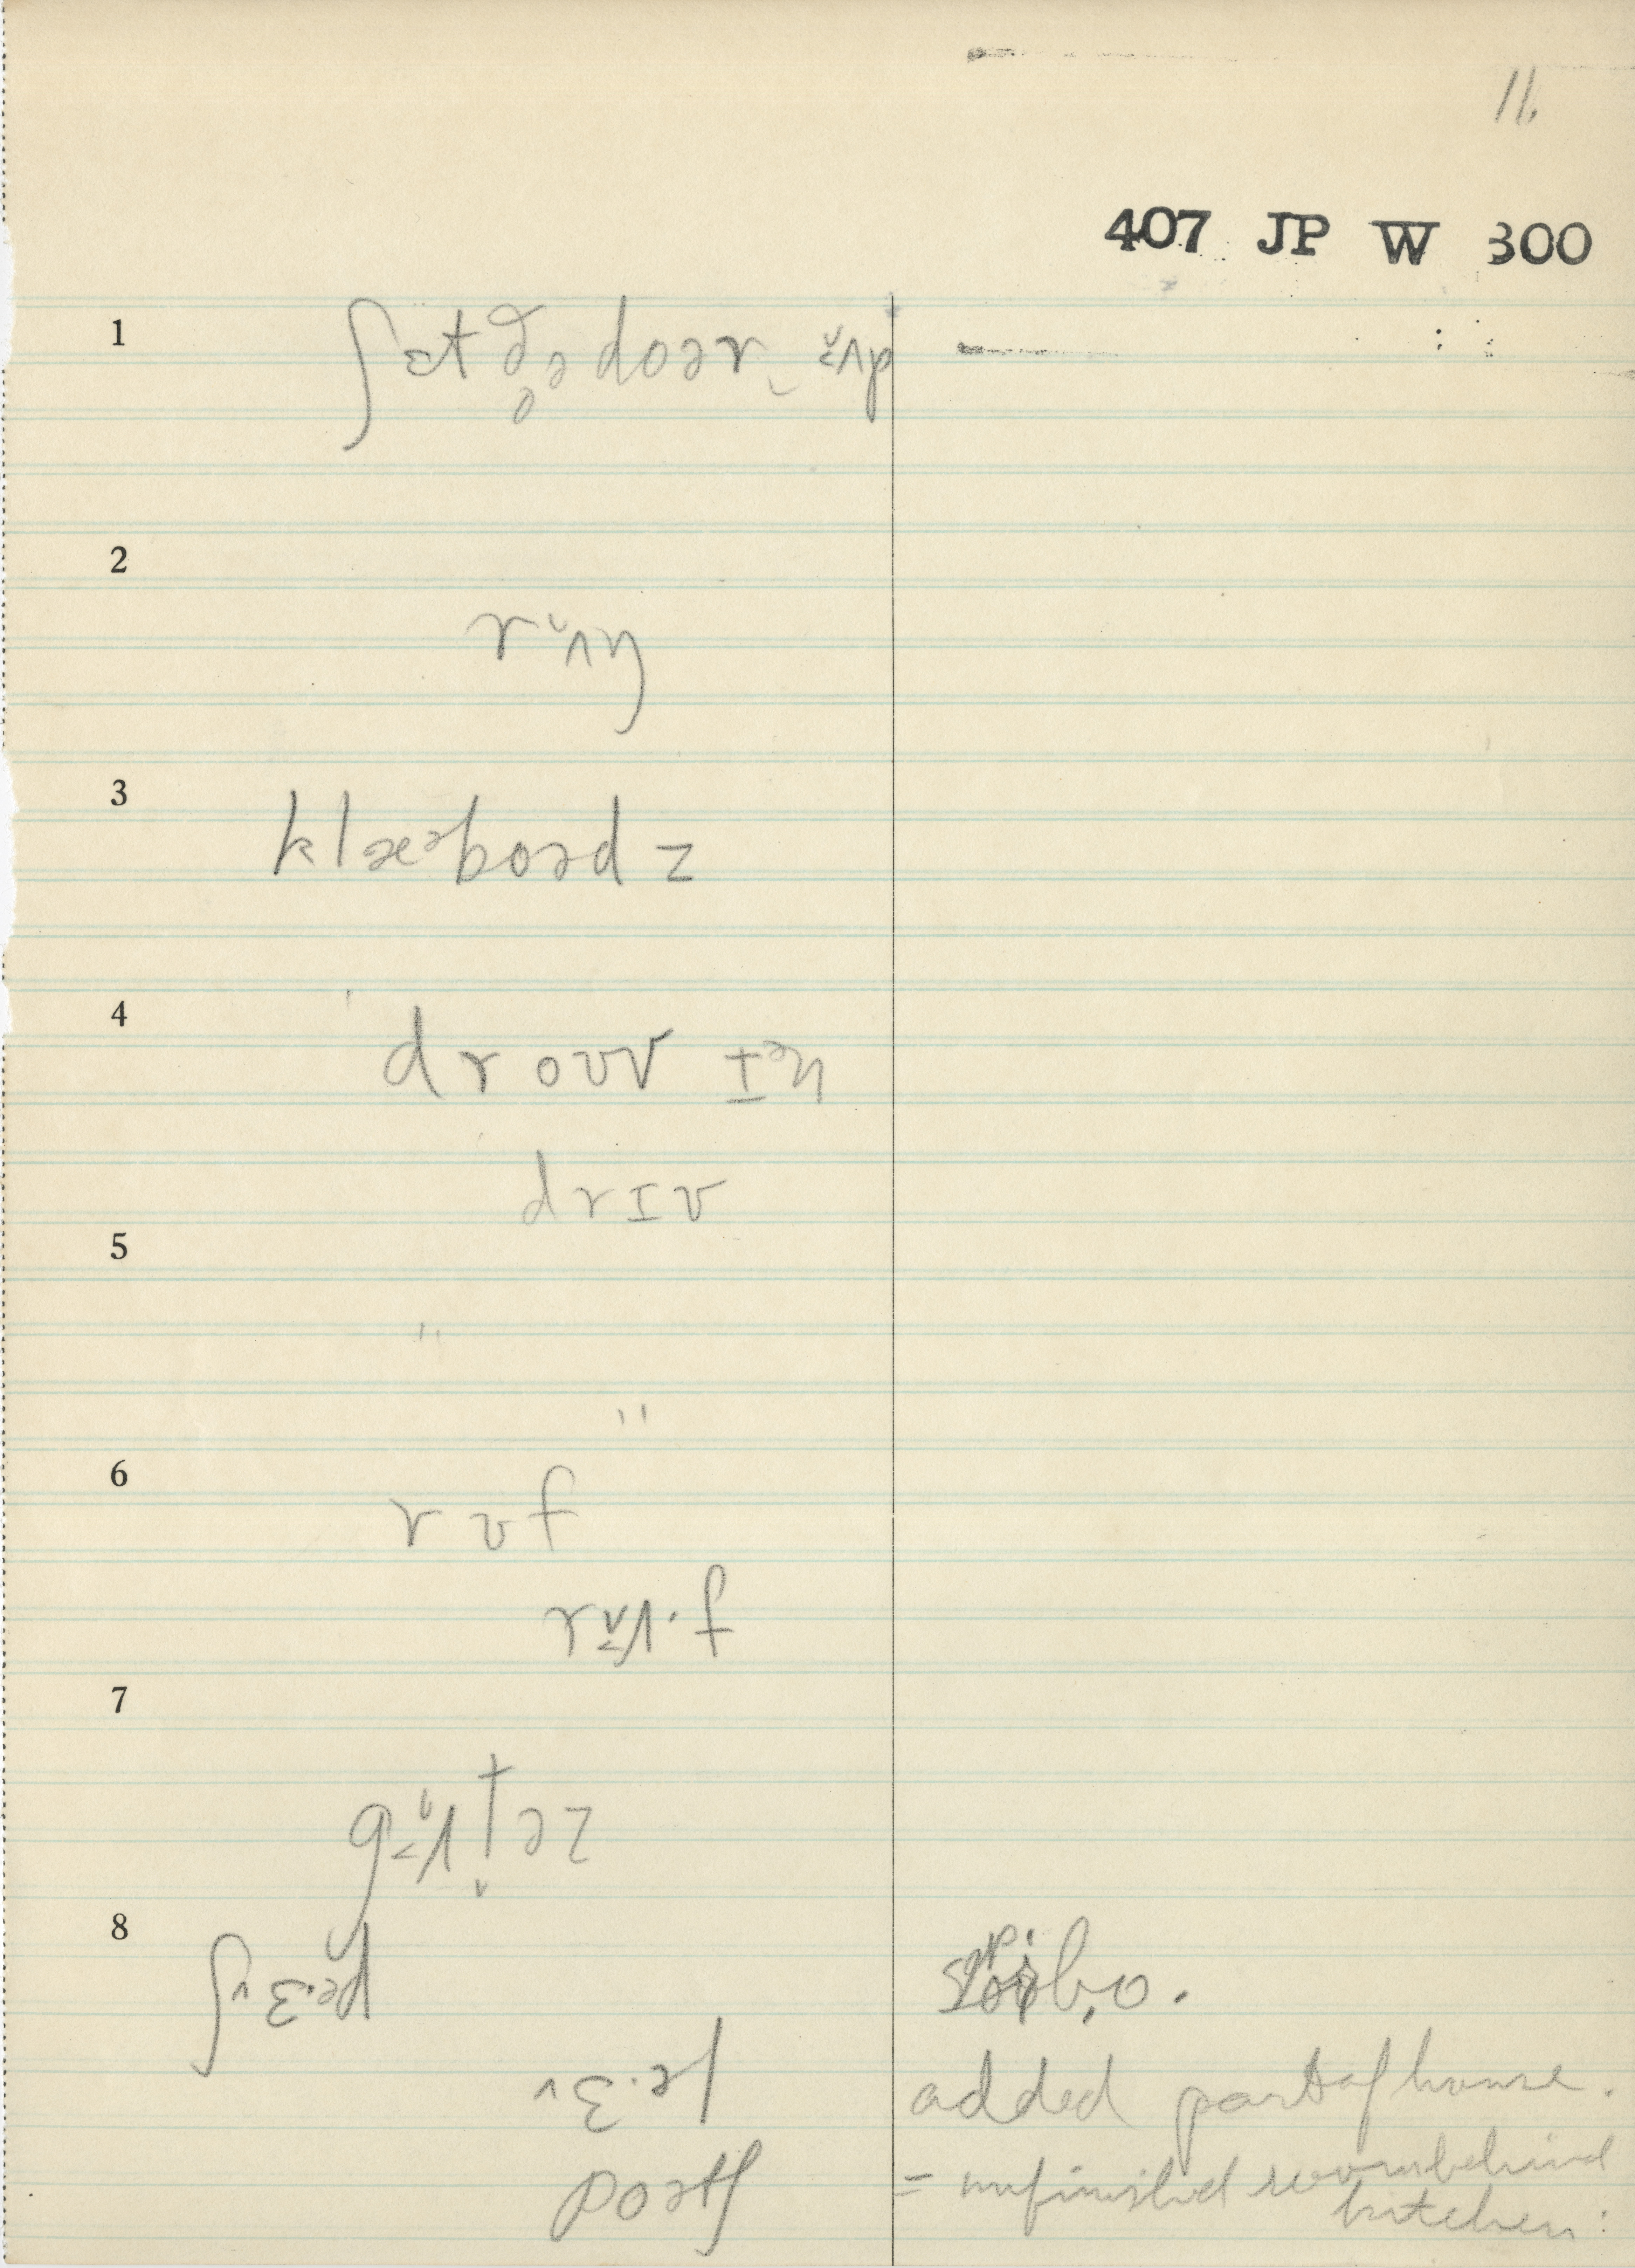 11.
407 JP W 300
1 ʃɛt ðə doər ʌp
2 rʌŋ
3 klæᵊboədz
4 droʊv ɪᵊn
drɪv
5
" "
6 rʊf
rʌ·f
7
gʌtəz
8 ʃɛ·əd
ɛ·əl added part of house.
poətʃ = unfinished room behind
kitchen: